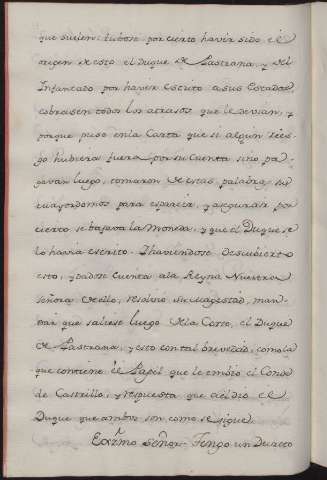 que suelen: tubose por cierto havèr sido el
origen de esto el Duque de Pastrana, y del
Infantado por havèr escrito a sus Estados,
cobrasen todos los atrasos que le devian, y
porque puso en la Carta que si algun ries-
go hubiera fuera por su Cuenta sino pa-
gavan luego, tomaron de estas palabras sus
mayordomos para esparcir, y asegurar por
cierto se bajava la Moneda, y que el Duque se
lo havia escrito. Y haviendose descubierto
esto, y dadose cuenta a la Reyna Nuestra
Señora de ello, resolvio su Magestad, man-
dar que saliese luego de la Corte, el Duque
de Pastrana, y esto con tal brevedad, como la
que contiene el Papel que le embio el Conde
de Castrillo, y respuesta que a el dio el
Duque que ambos son como se sigue.
Exc̃mo Señor. Tengo un Decreto